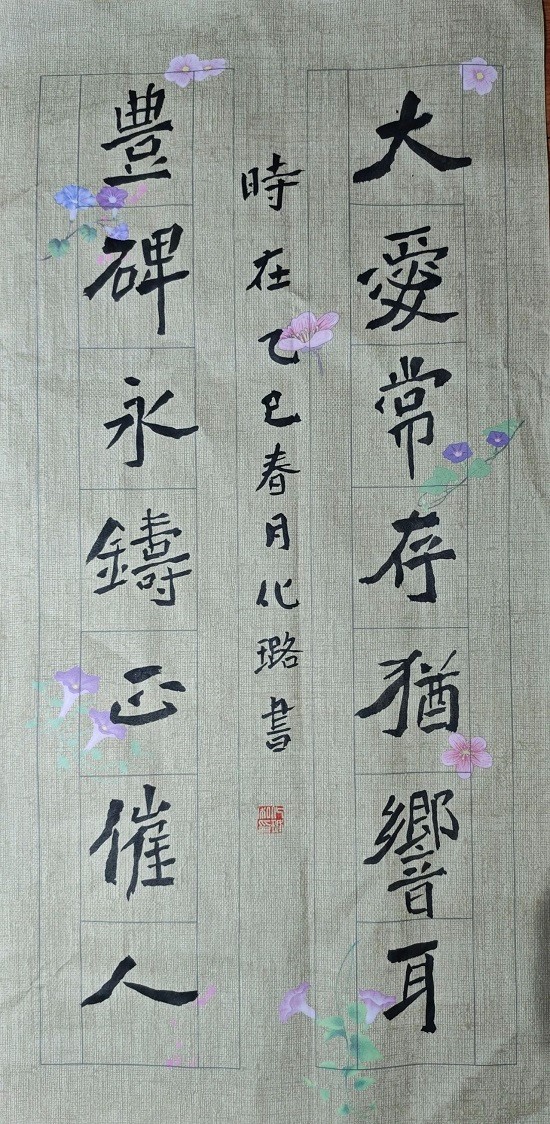 大愛常存猶響耳
豐碑永鑄正催人
時在乙巳春月化璐書